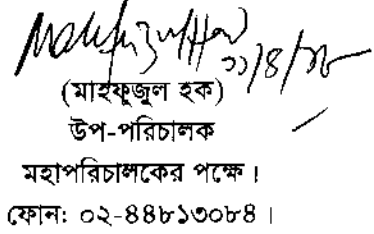 (মাহফুজুল হক)
উপ-পরিচালক
মহাপরিচালকের পক্ষে।
ফোন: ০২-৪৪৮১৩০৮৪।